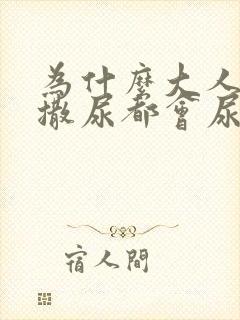 為什麼大人
撒尿都會尿
宿人間